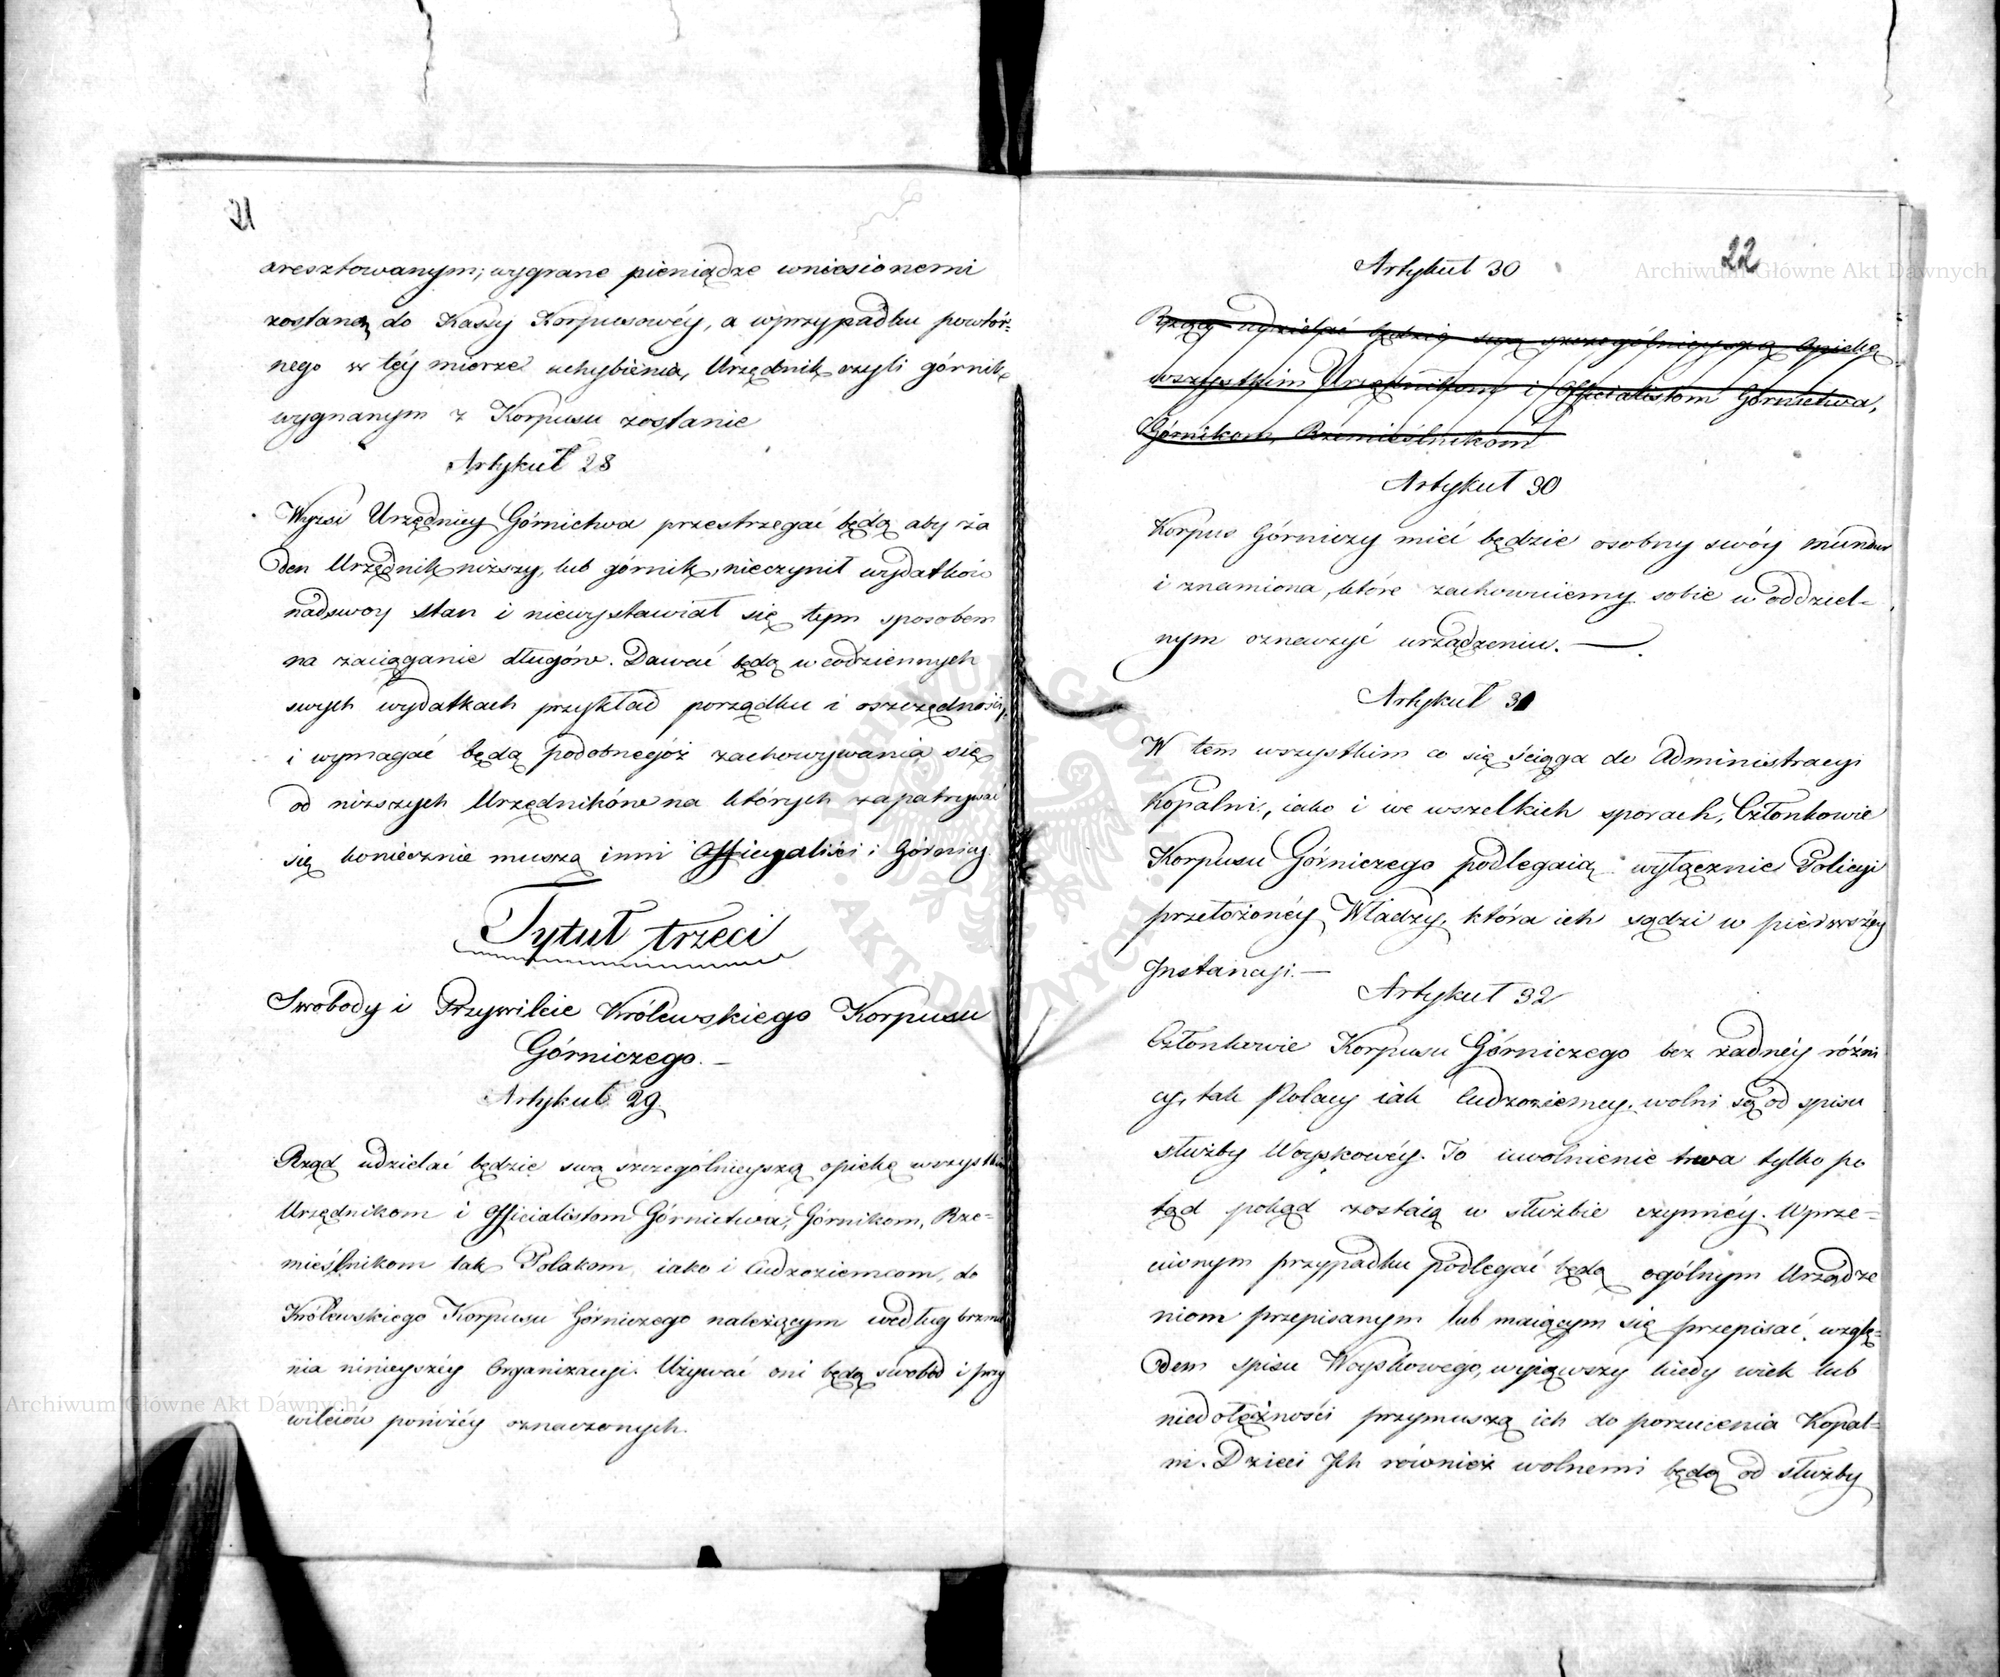 21
aresztowanym; wygrane pieniądze wniesionemi
zostaną do Kassy Korpusowéy, a wprzypadku powtór=
nego w téy mierze uchybienia, Urzędnik czyli górnik
wygnanym z Korpusu zostanie
Artykuł 28
Wyżsi Urzędnicy Górnictwa przestrzegać będą aby ża
den Urzędnik niższy, lub górnik, nieczynił wydatków
nadswoy stan i niewystawiał się tym sposobem
na zaciąganie długów. Dawać będą w codziennych
swych wydatkach przykład porządku i oszczędności,
i wymagać będą podobnegóż zachowywania się
od niższych Urzędników na których zapatrywać
się koniecznie muszą inni Officyaliści i Górnicy
Tytuł trzeci
Swobody i Przywileie Królewskiego Korpusu
Górniczego. —
Artykuł 29.
Rząd udzielać będzie swą szczególnieyszą opiekę wszystkim
Urzędnikom i Officialistom Górnictwa, Górnikom, Rze=
mieślnikom tak Polakom iako i Cudzoziemcom, do
Królewskiego Korpusu Górniczego należącym według brzmie
nia ninieyszéy Organizacyi. Używać oni będą swobod i przy
wileiów poniżéy oznaczonych.
22
Artykuł 30
Rząd udzielać będzie swą szczególnieyszą Opiekę
wszystkim Urzędnikom i Officialistom Górnictwa,
Górnikom, Rzemieślnikom
Artykuł 30
Korpus Górniczy mieć będzie osobny swóy mundur
i znamiona, które zachowuiemy sobie w oddziel=
nym oznaczyć urządzeniu. —
Artykuł 31
W tem wszystkim co się ściąga do Administracyi
Kopalni, iako i we wszelkich sporach, Członkowie
Korpusu Górniczego podlegaią wyłącznie Policyi
przełożonéy Władzy, która ich sądzi w pierwszéy
Instancyi. —
Artykuł 32
Członkowie Korpusu Górniczego bez żadnéy różni
cy, tak Polacy iak Cudzoziemcy, wolni są od spisu
służby Woyskowéy. To uwolnienie trwa tylko po
tąd pokąd zostaią w służbie czynnéy. Wprze=
ciwnym przypadku podlegać będą ogólnym Urządze
niom przepisanym lub maiącym się przepisać, wzglę=
dem spisu Woyskowego, wyiąwszy kiedy wiek lub
niedołężności przymuszą ich do porzucenia Kopal=
ni. Dzieci Ich również wolnemi będą od służby
Archiwum Główne Akt Dawnych
Archiwum Główne Akt Dawnych
ARCHIWUM GŁÓWNE AKT DAWNYCH